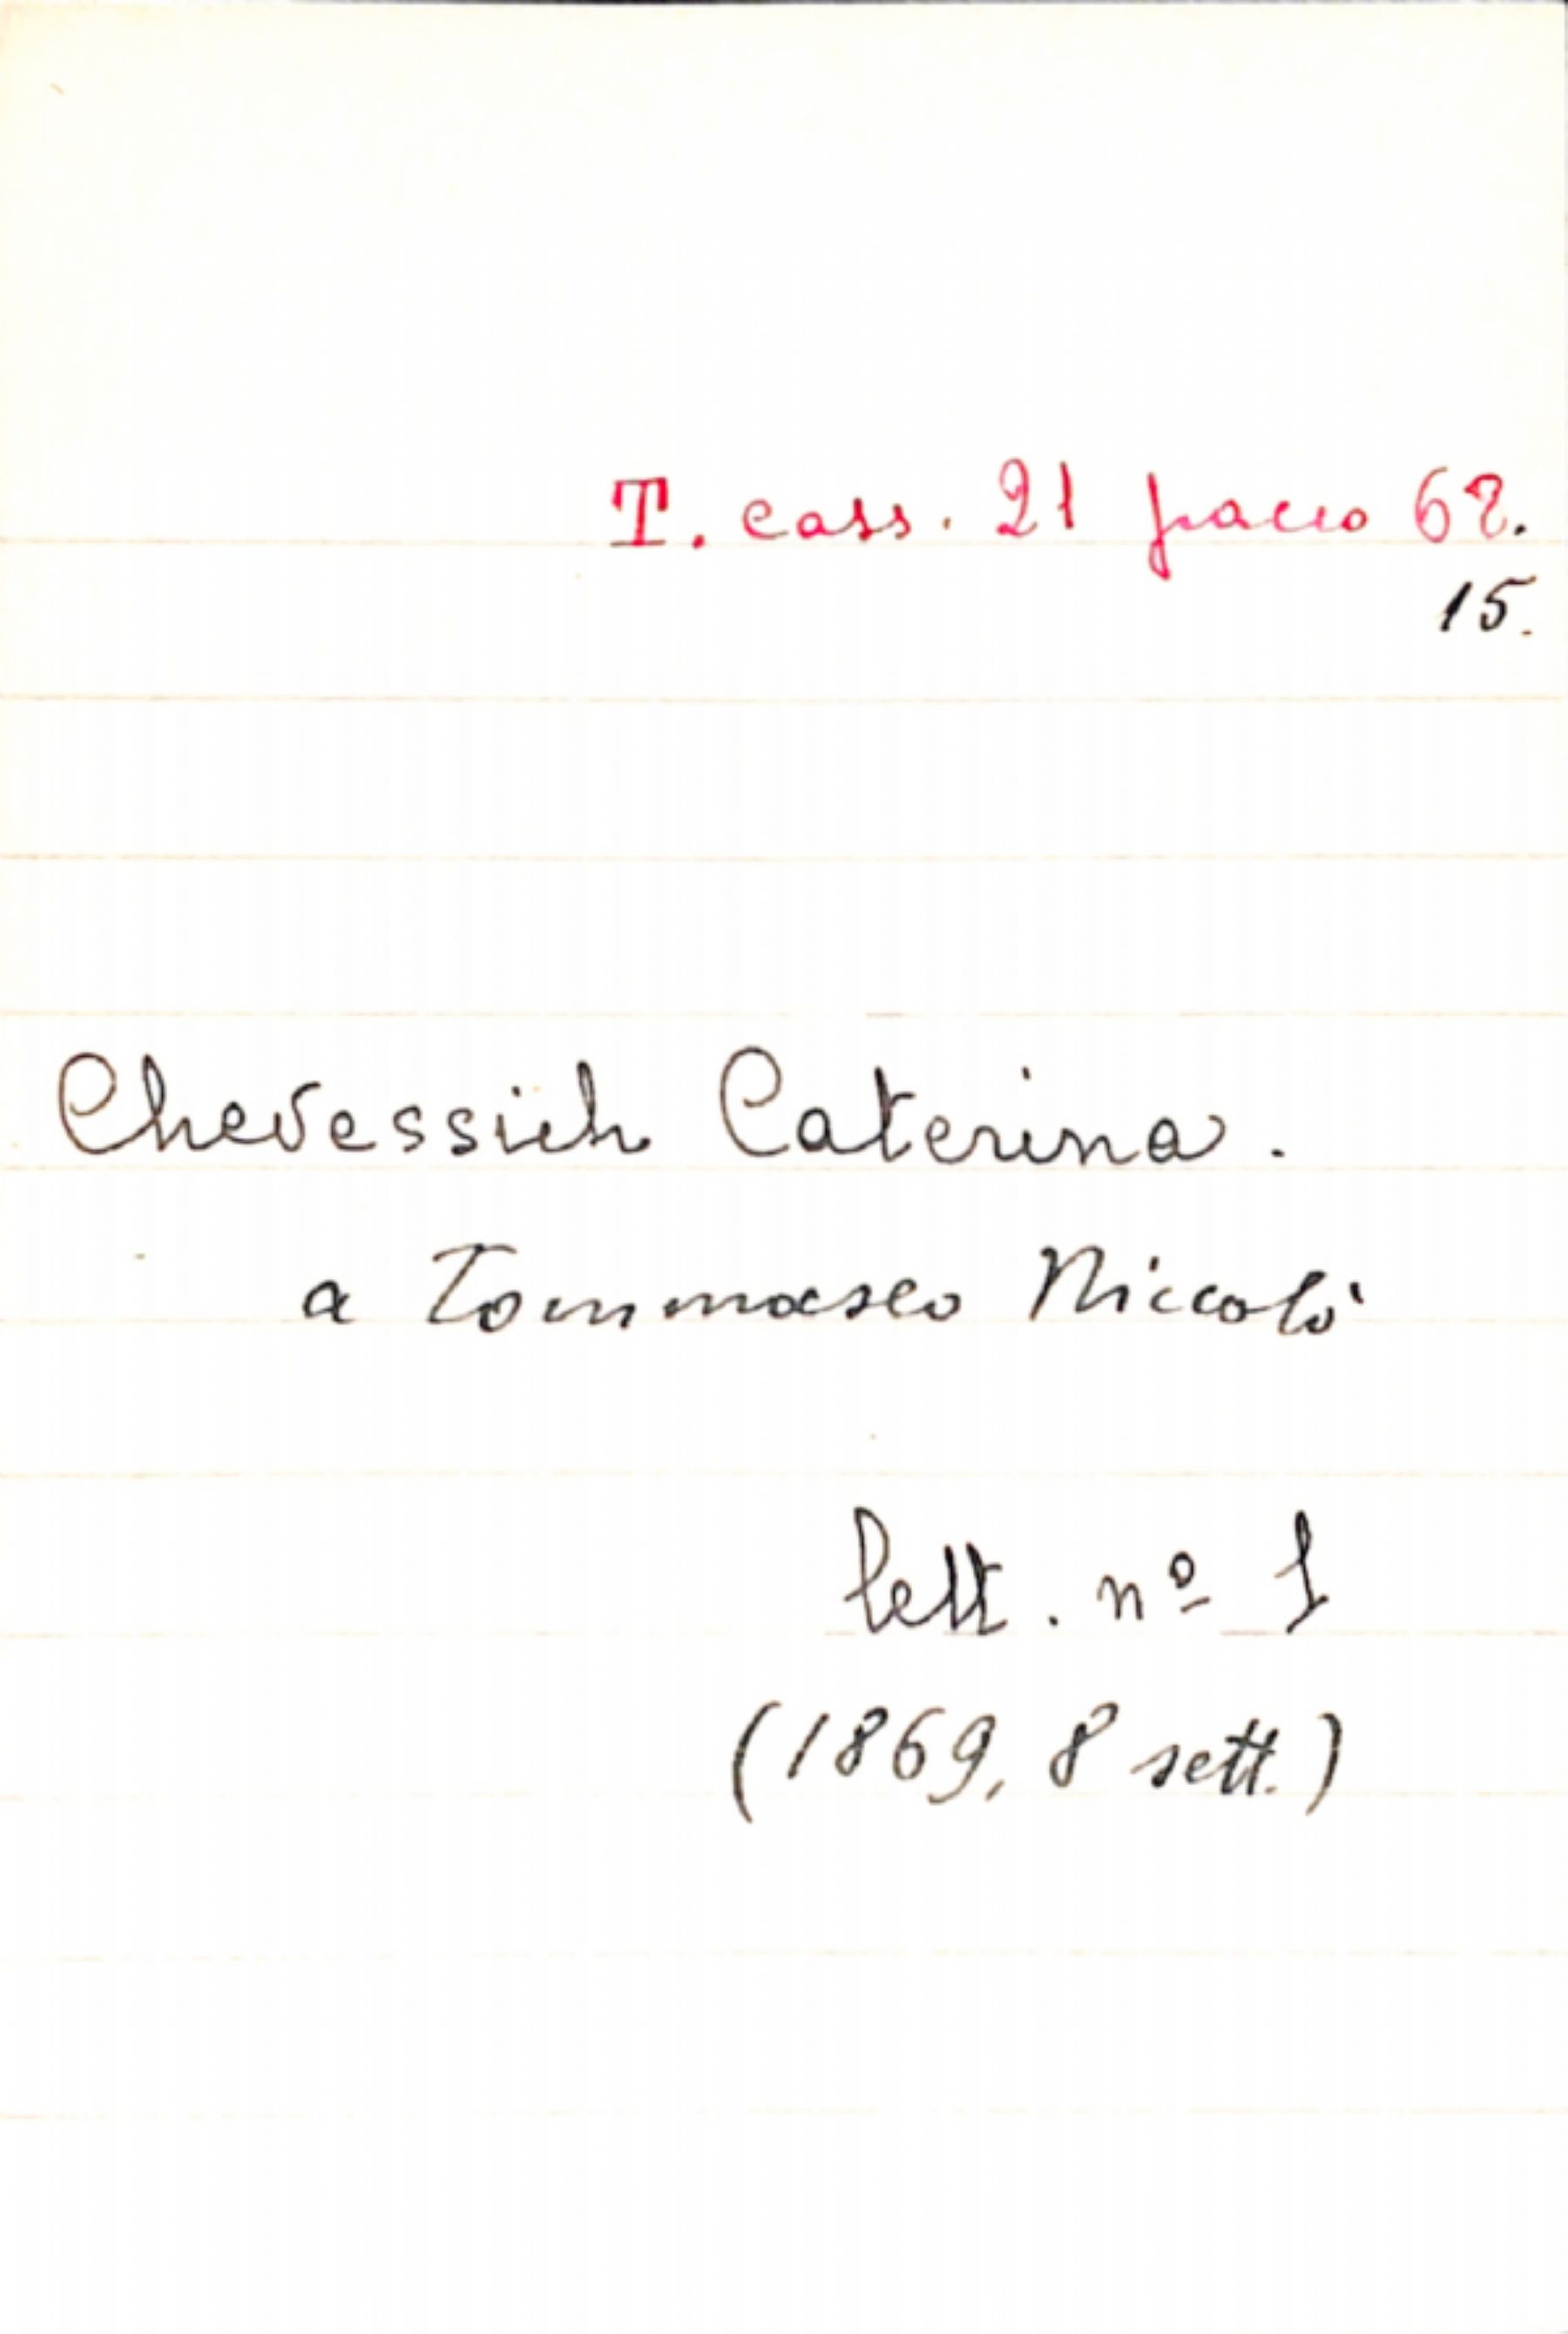 T. cass. 21 pacco 62.
15.
Chevessich Caterina.
a Tommaseo Niccolò
lett. nº 1
(1869, 8 sett.)